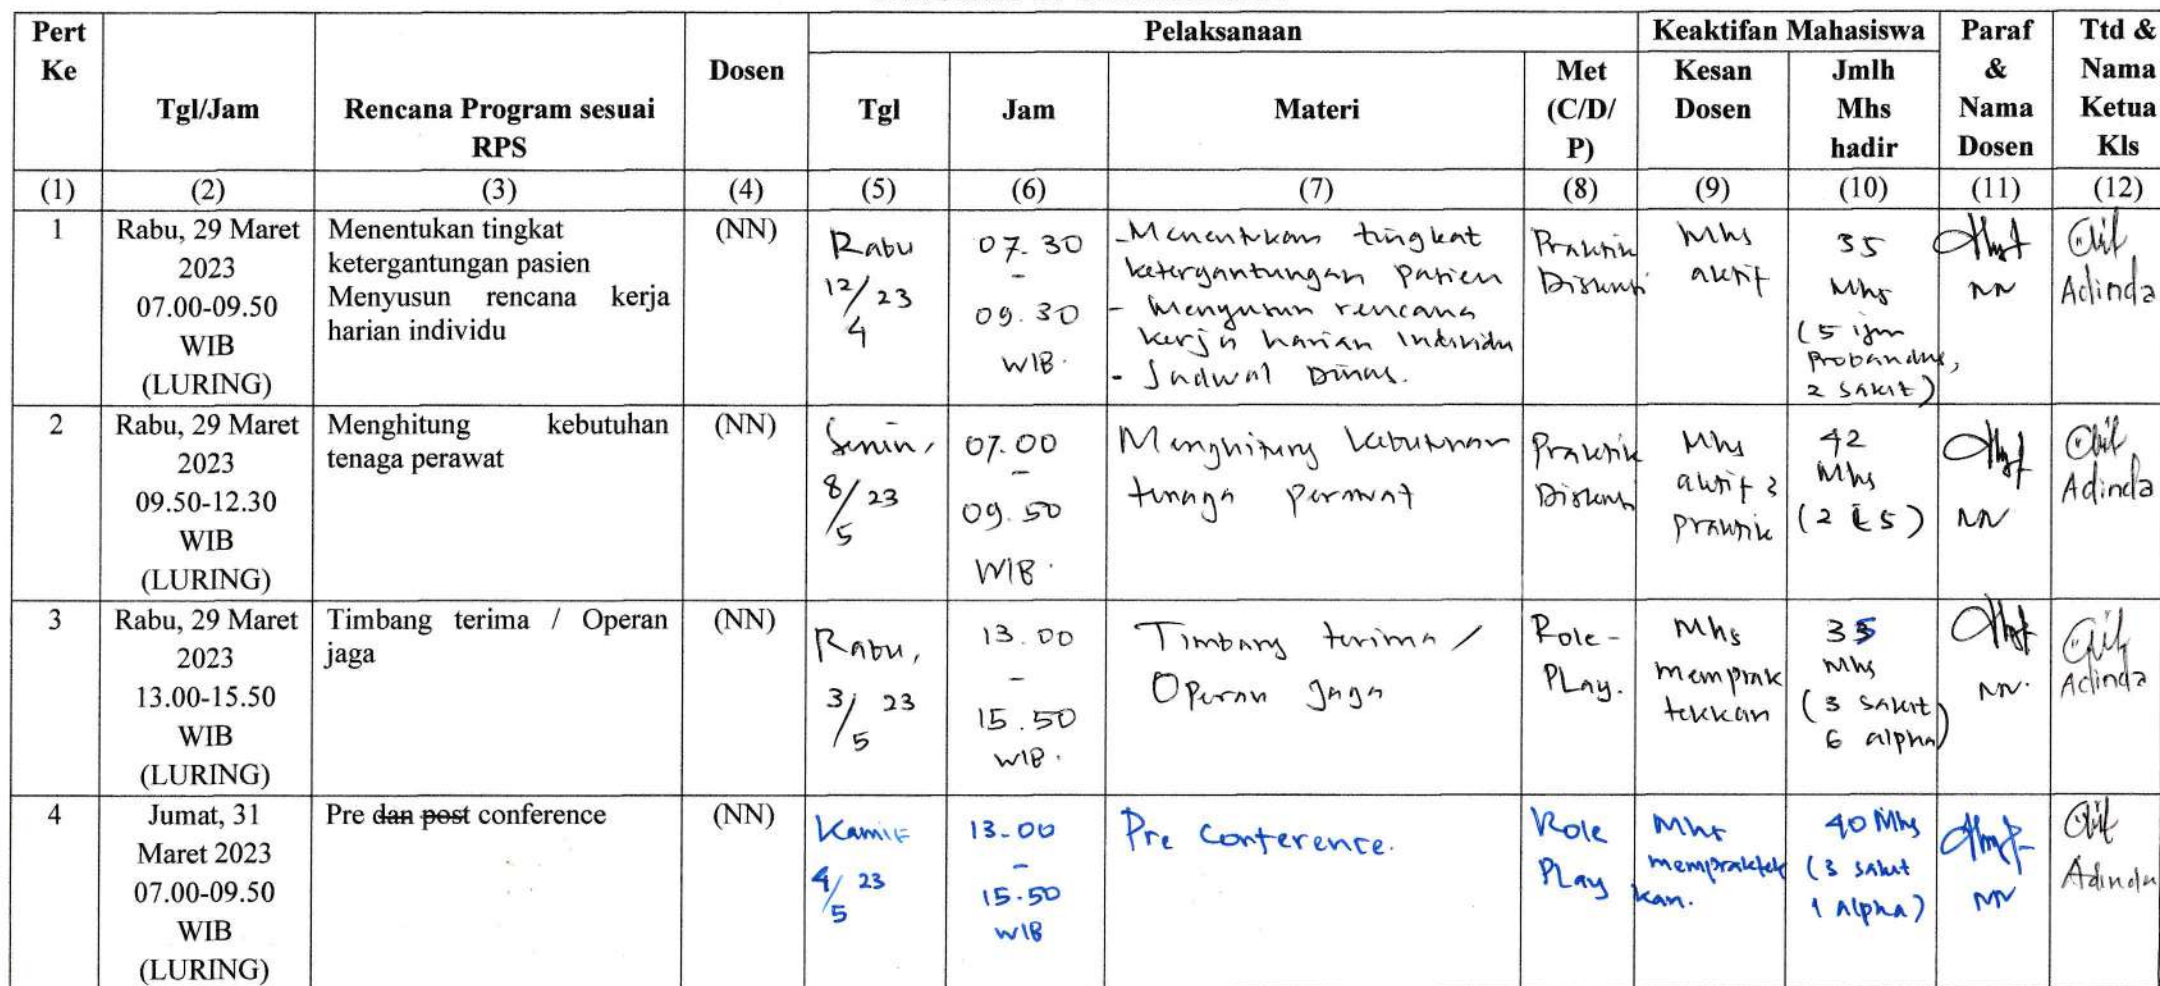 Pert Ke
Tgl/Jam
Rencana Program sesuai RPS
Dosen
Pelaksanaan
Tgl
Jam
Materi
Met (C/D/ P)
Keaktifan Mahasiswa
Kesan Dosen
Jmlh Mhs hadir
Paraf & Nama Dosen
Ttd & Nama Ketua Kls
(1) (2) (3) (4) (5) (6) (7) (8) (9) (10) (11) (12)
1
Rabu, 29 Maret
2023
07.00-09.50
WIB
(LURING)
Menentukan tingkat
ketergantungan pasien
Menyusun rencana kerja
harian individu
(NN)
Rabu
12/4 23
07.30
-
09.30
WIB.
- Menentukan tingkat
ketergantungan pasien
- Menyusun rencana
kerja harian individu
- Jadwal Dinas.
Praktik
Diskusi
Mhs
aktif
35
Mhs
(5 ijin
probandus,
2 sakit)
NN
Adinda
2
Rabu, 29 Maret
2023
09.50-12.30
WIB
(LURING)
Menghitung kebutuhan
tenaga perawat
(NN)
Senin,
8/5 23
07.00
-
09.50
WIB.
Menghitung kebutuhan
tenaga perawat
Praktik
Diskusi
Mhs
aktif
praktik
42
Mhs
NN
Adinda
3
Rabu, 29 Maret
2023
13.00-15.50
WIB
(LURING)
Timbang terima / Operan
jaga
(NN)
Rabu,
3/5 23
13.00
-
15.50
WIB.
Timbang terima /
Operan jaga
Role-
Play.
Mhs
memprak
tekkan
35
Mhs
(3 sakit
6 alpha)
NN.
Adinda
4
Jumat, 31
Maret 2023
07.00-09.50
WIB
(LURING)
Pre dan post conference
(NN)
Kamis
4/5 23
13.00
-
15.50
WIB
Pre Conference.
Role
Play
Mhs
mempraktek
kan.
40 Mhs
(3 sakit
1 Alpha)
NN
Adinda